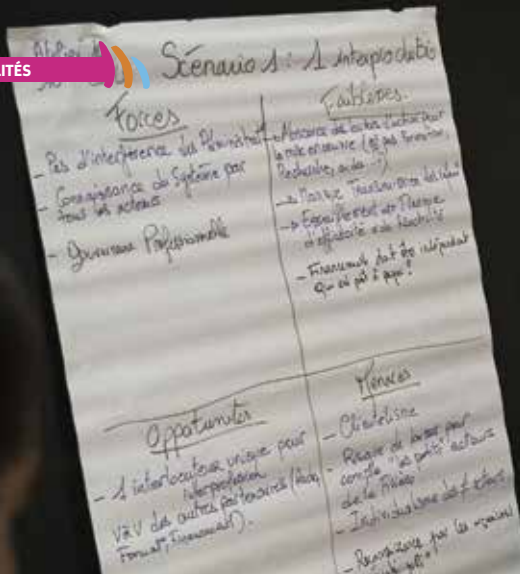 ITÉS
Scénario 1 : 1 interproduction
Forces
- Pas d'interférence des Administrat
- Connaissance du Système par
tous les acteurs
- Gouvernance Professionnelle
Faiblesses
- Absence de
la mise en œuvre (ex: pas formation
Recherche,
→ Manque
→ Eparpillement → Manque
d'efficacité de
- Financement doit être indépendant
Qui est prêt à payer ?
Opportunités
- 1 interlocuteur unique pour
interprofession
Vàv des autres partenaires (
Format°, Financement).
Menaces
- Clientélisme
- Risque de laisser pour
compte "les petits" acteurs
de la filière
- Individualisme des acteurs
- par les